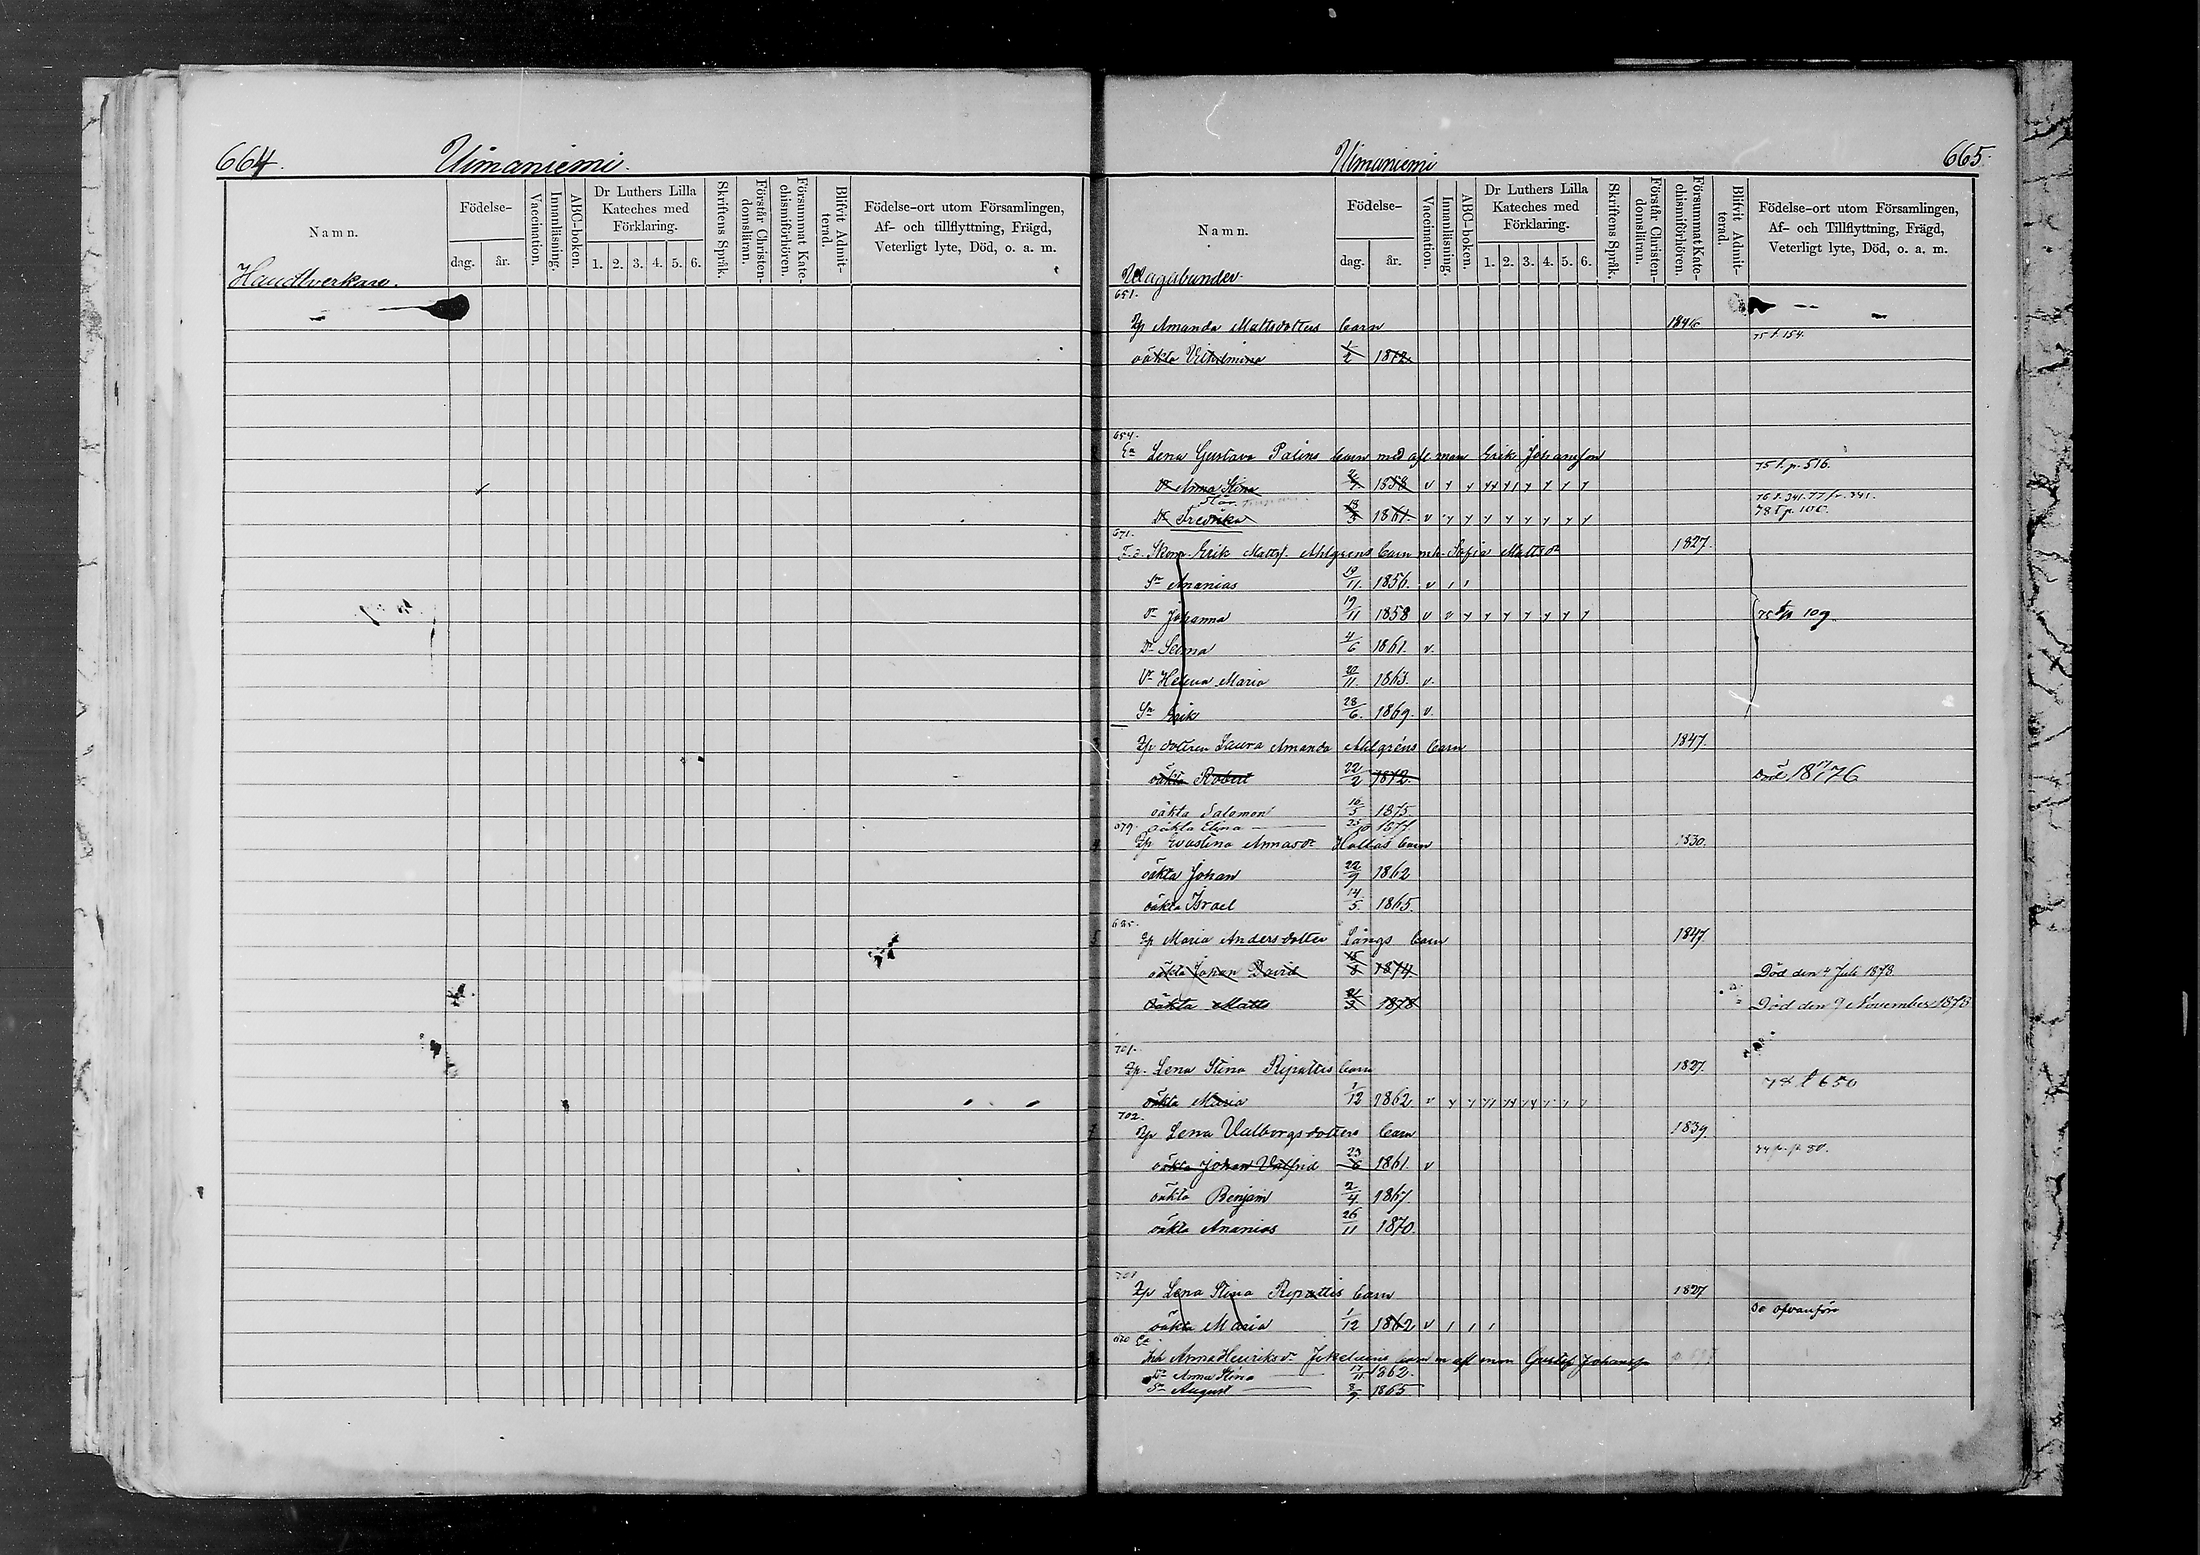 664.
Uimaniemi.
Namn.
Födelse-
dag.
år.
Vaccination.
Innanläsning.
ABC-boken.
Dr Luthers Lilla
Kateches med
Förklaring.
1. 2. 3. 4. 5. 6.
Skriftens Språk.
Förstår Christen-
domsläran.
Försummat Kate-
chismiförhören.
Blifvit Admit-
terad.
Födelse-ort utom Församlingen,
Af- och tillflyttning, Frägd,
Veterligt lyte, Död, o. a. m.
Handtverkare.
Uimaniemi
665.
Namn.
Födelse-
dag.
år.
Vaccination.
Innanläsning.
ABC-boken.
Dr Luthers Lilla
Kateches med
Förklaring.
1. 2. 3. 4. 5. 6.
Skriftens Språk.
Förstår Christen-
domsläran.
Försummat Kate-
chismiförhören.
Blifvit Admit-
terad.
Födelse-ort utom Församlingen,
Af- och Tillflyttning, Frägd,
Veterligt lyte, Död, o. a. m.
651.
Amanda Mattsdotters barn 1846
75 t. 154.
oäkta Vilhelmina 1/2 1872.
654.
Ea Lena Gustava Palins barn med afl. man Erik Johansson
75 t. p. 516.
Dr Anna Stina 1858
76 t. 341. 77 fr. 341.
Dr Fredrika 1861.
78 t p 100.
671.
Skom. Erik Matts. Ahlgrens barn Sofia Mattsdr 1827.
Sn Ananias 19/11. 1856. v
Dr Johanna 19/11 1858 v
75 t p 109
Dr Selma 4/6 1861. v.
Dr Helena Maria 20/11. 1863. v.
Sn Erik 28/6. 1869. v.
dottren Laura Amanda Ahlgréns barn 1847.
oäkta Robert 22/2 1872.
död 18 17/1 76
oäkta Salomon 16/5 1875
679.
oäkta Elina 1877
Evastina Annasdr Hallas barn 1830.
oäkta Johan 22/9 1862
oäkta Israel 14/5. 1865.
685.
Maria Andersdotter Långs barn 1847.
oäkta Johan David 1874
Död den 4 Juli 1878
oäkta Matts 1878
Död den 9 November 1878
701.
Lena Stina Ripattis barn 1827.
78 t 650
oäkta Maria 1/12 1862 v
702.
Lena Valborgsdotters barn 1839.
oäkta Johan Valfrid 23/6 1861. v
oäkta Benjam 2/4 1867
oäkta Ananias 26/11 1870.
701
Lena Stina Ripattis barn 1827
Se ofvanföre
oäkta Maria 1/12 1862 v
Anna Henriksdr barn m afl man Gustaf Johansson
Dr Anna Stina 17/11 1862.
Sn August 8/9 1865